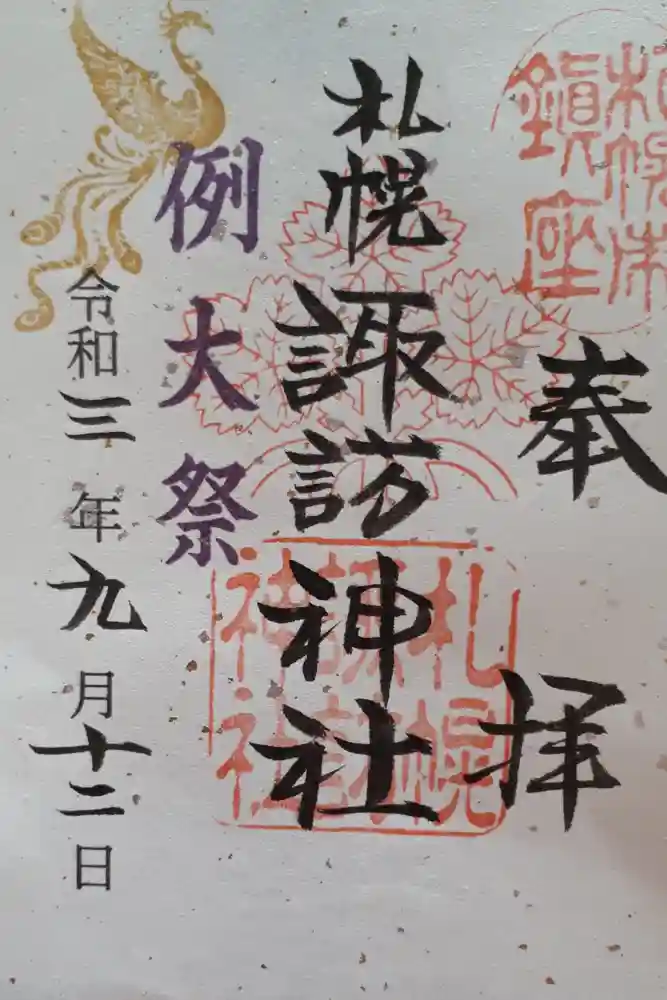 奉拝
札幌諏訪神社
例大祭
令和三年九月十二日
鎮座
札幌諏訪神社